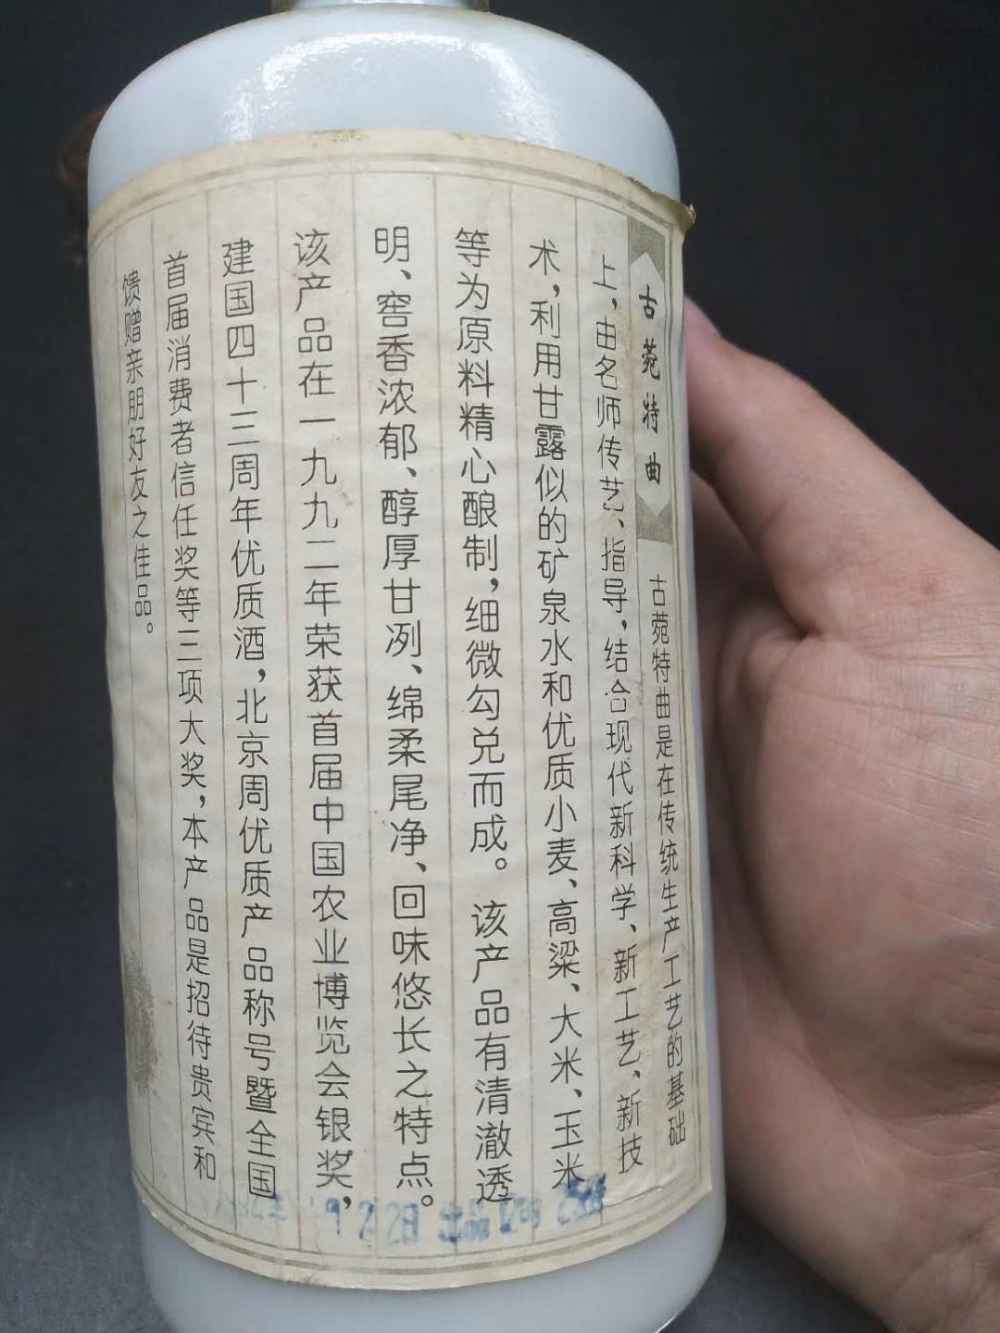 古菀特曲
古菀特曲是在传统生产工艺的基础
上，由名师传艺、指导，结合现代新科学、新工艺、新技
术，利用甘露似的矿泉水和优质小麦、高粱、大米、玉米
等为原料精心酿制，细微勾兑而成。该产品有清澈透
明、窖香浓郁、醇厚甘冽、绵柔尾净、回味悠长之特点。
该产品在一九九二年荣获首届中国农业博览会银奖，
建国四十三周年优质酒，北京周优质产品称号暨全国
首届消费者信任奖等三项大奖，本产品是招待贵宾和
馈赠亲朋好友之佳品。